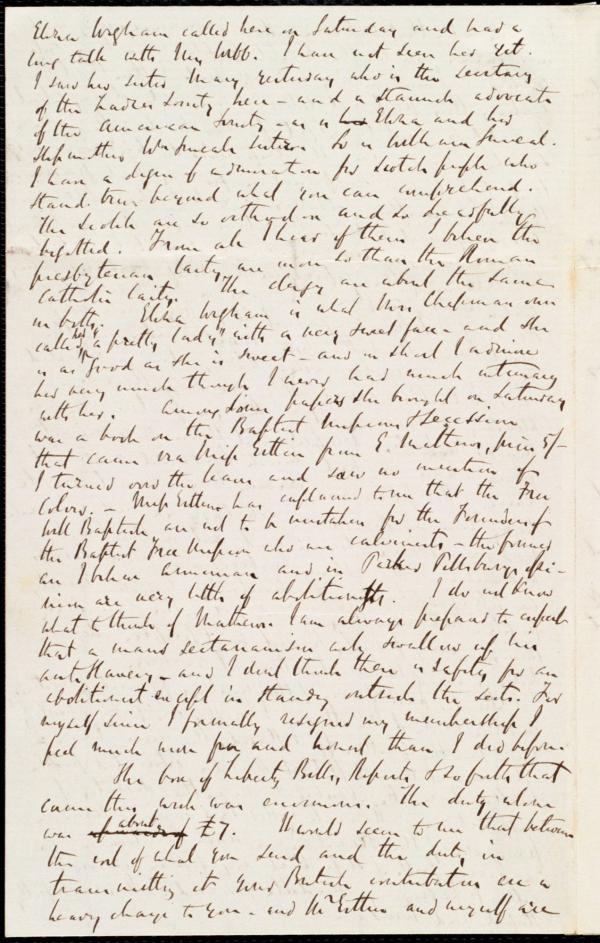 Eliza Wigham called here on Saturday and had a
long talk with Mr Webb. I have not seen her yet.
I saw her sister Mary yesterday who is the Secretary
of the Ladies Society here – and a staunch advocate
of the American Society – as is Eliza and her
stepmother, Wm Smeal's sister. So is William Smeal.
I have a degree of admiration for Scotch people who
stand true beyond what you can comprehend.
The Scotch are so orthodox and so dreadfully
bigotted. From all I hear of them I believe the
presbyterian laity are more so than the Roman
Catholic laity. The clergy are about the same
in both. Eliza Wigham is what Mrs Chapman once
called "a pretty lady" with a very sweet face – and she
is as good as she is sweet – and in short I admire
her very much though I never had much intimacy
with her. Among some papers she brought on Saturday
was a book on the Baptist Mission & Secession
that came via Miss Estlin from E. Mathews, price 5/-
I turned over the leaves and saw no mention of
Colver. – Miss Estlin has explained to me that the Free
Will Baptists are not to be mistaken for the Founders of
the Baptist Free Mission who are calvinists – the former
are I believe Armenian and in Parker Pillsbury's opi-
nion are very little of abolitionists. I do not know
what to think of Mathews. I am always prepared to expect
that a man's sectarianism will swallow up his
anti slavery – and I don't think there is safety for an
abolitionist except in standing outside the sects. For
myself since I formally resigned my membership I
feel much more free and honest than I did before
The box of Liberty Bells, Reports & so forth that
came this week was enormous. The duty alone
was about £7. It would seem to me that between
the cost of what you send and the duty, in
transmitting it your British contributors are a
heavy charge to you – and Mr Estlin and myself are